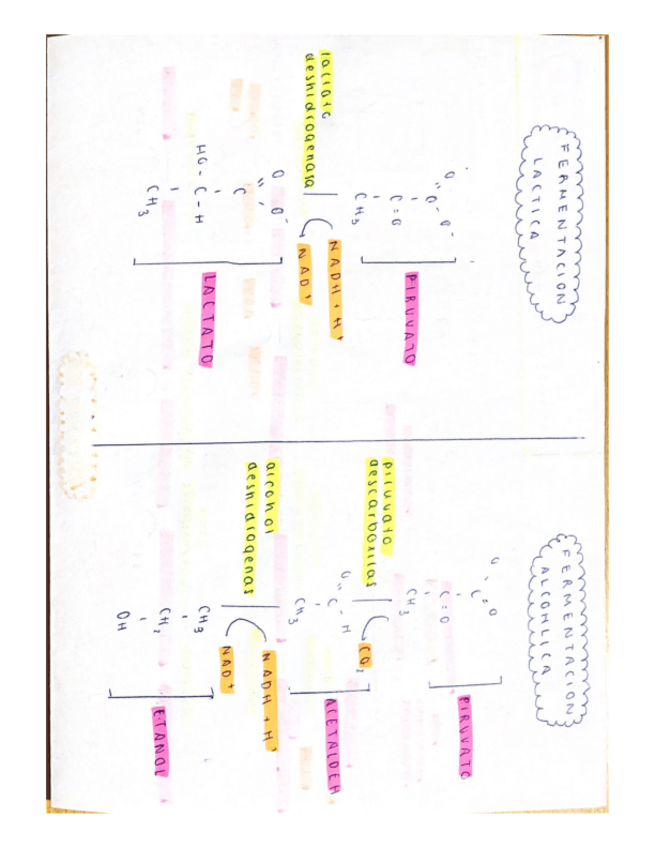 FERMENTACION
LACTICA
C = O
CH3
PIRUVATO
lactato
deshidrogenasa
NADH + H+
NAD+
O O-
C
HO - C - H
CH3
LACTATO
FERMENTACION
ALCOHLICA
C = O
C = O
CH3
PIRUVATO
piruvato
descarboxilas
CO2
O
C - H
CH3
ACETALDEH
alcohol
deshidrogenas
NADH + H+
NAD+
CH3
CH2
OH
ETANOL